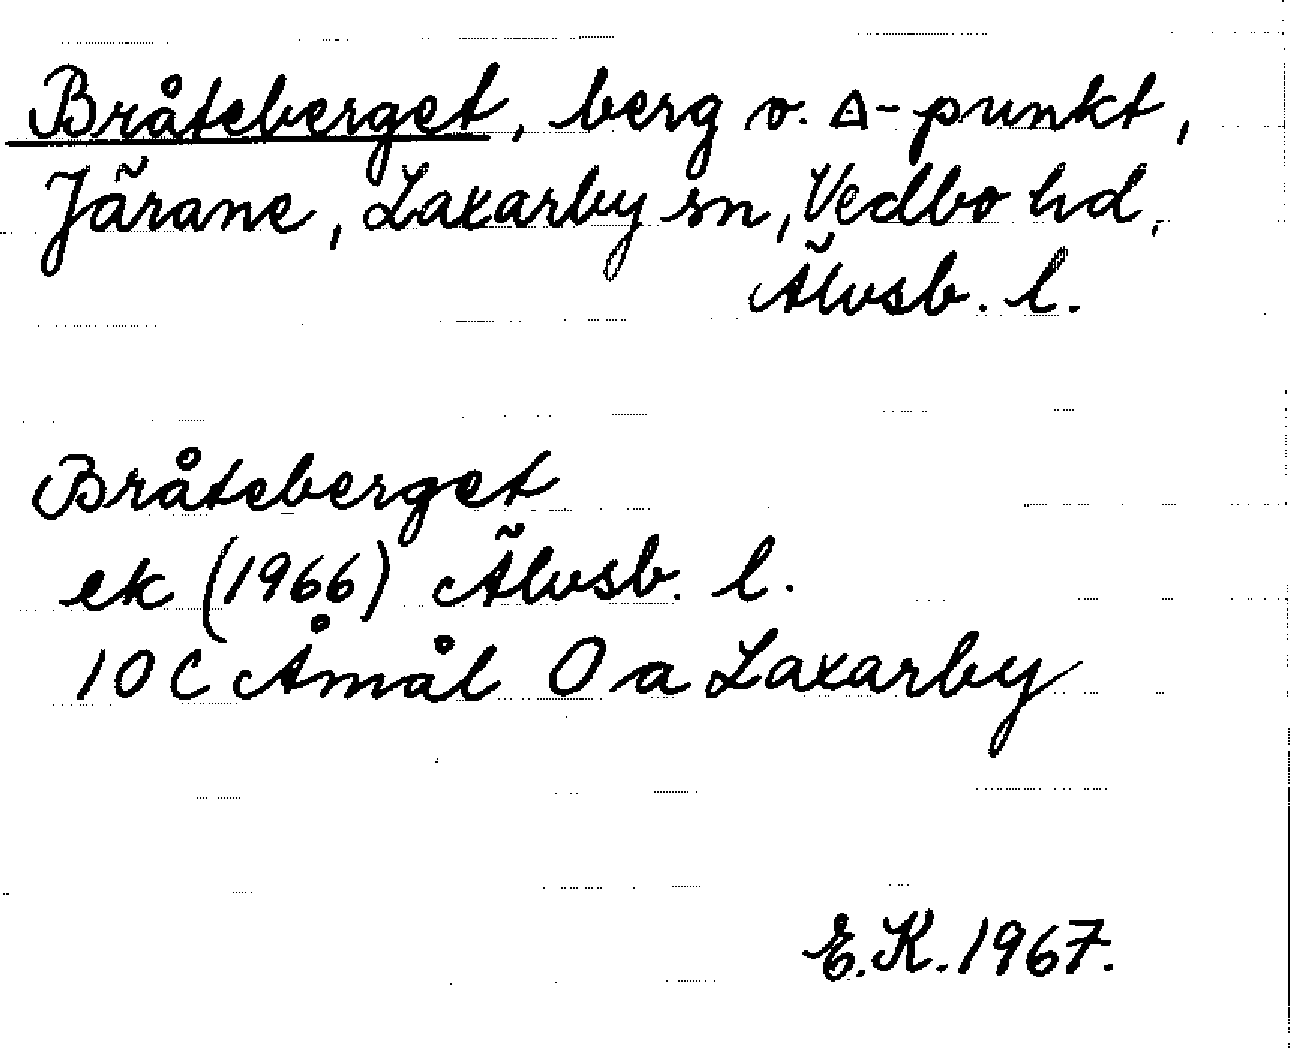 Bråteberget, berg o. △-punkt,
Järane, Laxarby sn, Vedbo hd,
Älvsb. l.
Bråteberget
ek (1966) Älvsb. l.
10 C Åmål O a Laxarby
E.K. 1967.